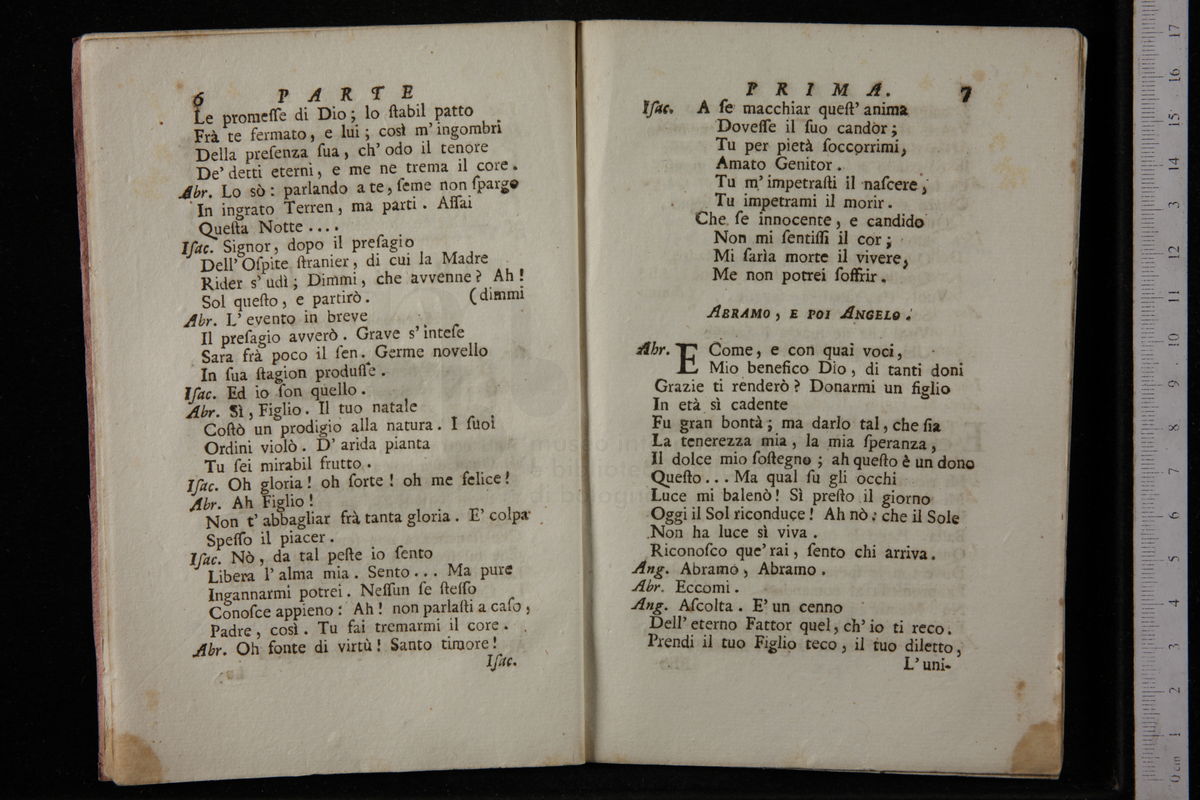 6 PARTE
Le promeſſe di Dio; lo ſtabil patto
Frà te fermato, e lui; così m'ingombri
Della preſenza ſua, ch'odo il tenore
De' detti eterni, e me ne trema il core.
Abr. Lo sò: parlando a te, ſeme non ſpargo
In ingrato Terren, ma parti. Aſſai
Queſta Notte....
Iſac. Signor, dopo il preſagio
Dell'Oſpite ſtranier, di cui la Madre
Rider s'udì; Dimmi, che avvenne? Ah!
Sol queſto, e partirò. (dimmi
Abr. L'evento in breve
Il preſagio avverò. Grave s'inteſe
Sara frà poco il ſen. Germe novello
In ſua ſtagion produſſe.
Iſac. Ed io ſon quello.
Abr. Sì, Figlio. Il tuo natale
Coſtò un prodigio alla natura. I ſuoi
Ordini violò. D'arida pianta
Tu ſei mirabil frutto.
Iſac. Oh gloria! oh ſorte! oh me felice!
Abr. Ah Figlio!
Non t'abbagliar frà tanta gloria. E' colpa
Speſſo il piacer.
Iſac. Nò, da tal peſte io ſento
Libera l'alma mia. Sento... Ma pure
Ingannarmi potrei. Neſſun ſe ſteſſo
Conoſce appieno: Ah! non parlaſti a caſo,
Padre, così. Tu fai tremarmi il core.
Abr. Oh fonte di virtù! Santo timore!
Iſac.
PRIMA. 7
Iſac. A ſe macchiar queſt'anima
Doveſſe il ſuo candòr;
Tu per pietà ſoccorrimi,
Amato Genitor.
Tu m'impetraſti il naſcere,
Tu impetrami il morir.
Che ſe innocente, e candido
Non mi ſentiſſi il cor;
Mi ſarìa morte il vivere,
Me non potrei ſoffrir.
ABRAMO, E POI ANGELO.
Abr. E Come, e con quai voci,
Mio benefico Dio, di tanti doni
Grazie ti renderò? Donarmi un figlio
In età sì cadente
Fu gran bontà; ma darlo tal, che ſia
La tenerezza mia, la mia ſperanza,
Il dolce mio ſoſtegno; ah queſto è un dono
Queſto... Ma qual fu gli occhi
Luce mi balenò! Sì preſto il giorno
Oggi il Sol riconduce! Ah nò: che il Sole
Non ha luce sì viva.
Riconoſco que' rai, ſento chi arriva.
Ang. Abramo, Abramo.
Abr. Eccomi.
Ang. Aſcolta. E' un cenno
Dell'eterno Fattor quel, ch'io ti reco.
Prendi il tuo Figlio teco, il tuo diletto,
L'uni-
0 cm 1 2 3 4 5 6 7 8 9 10 11 12 13 14 15 16 17